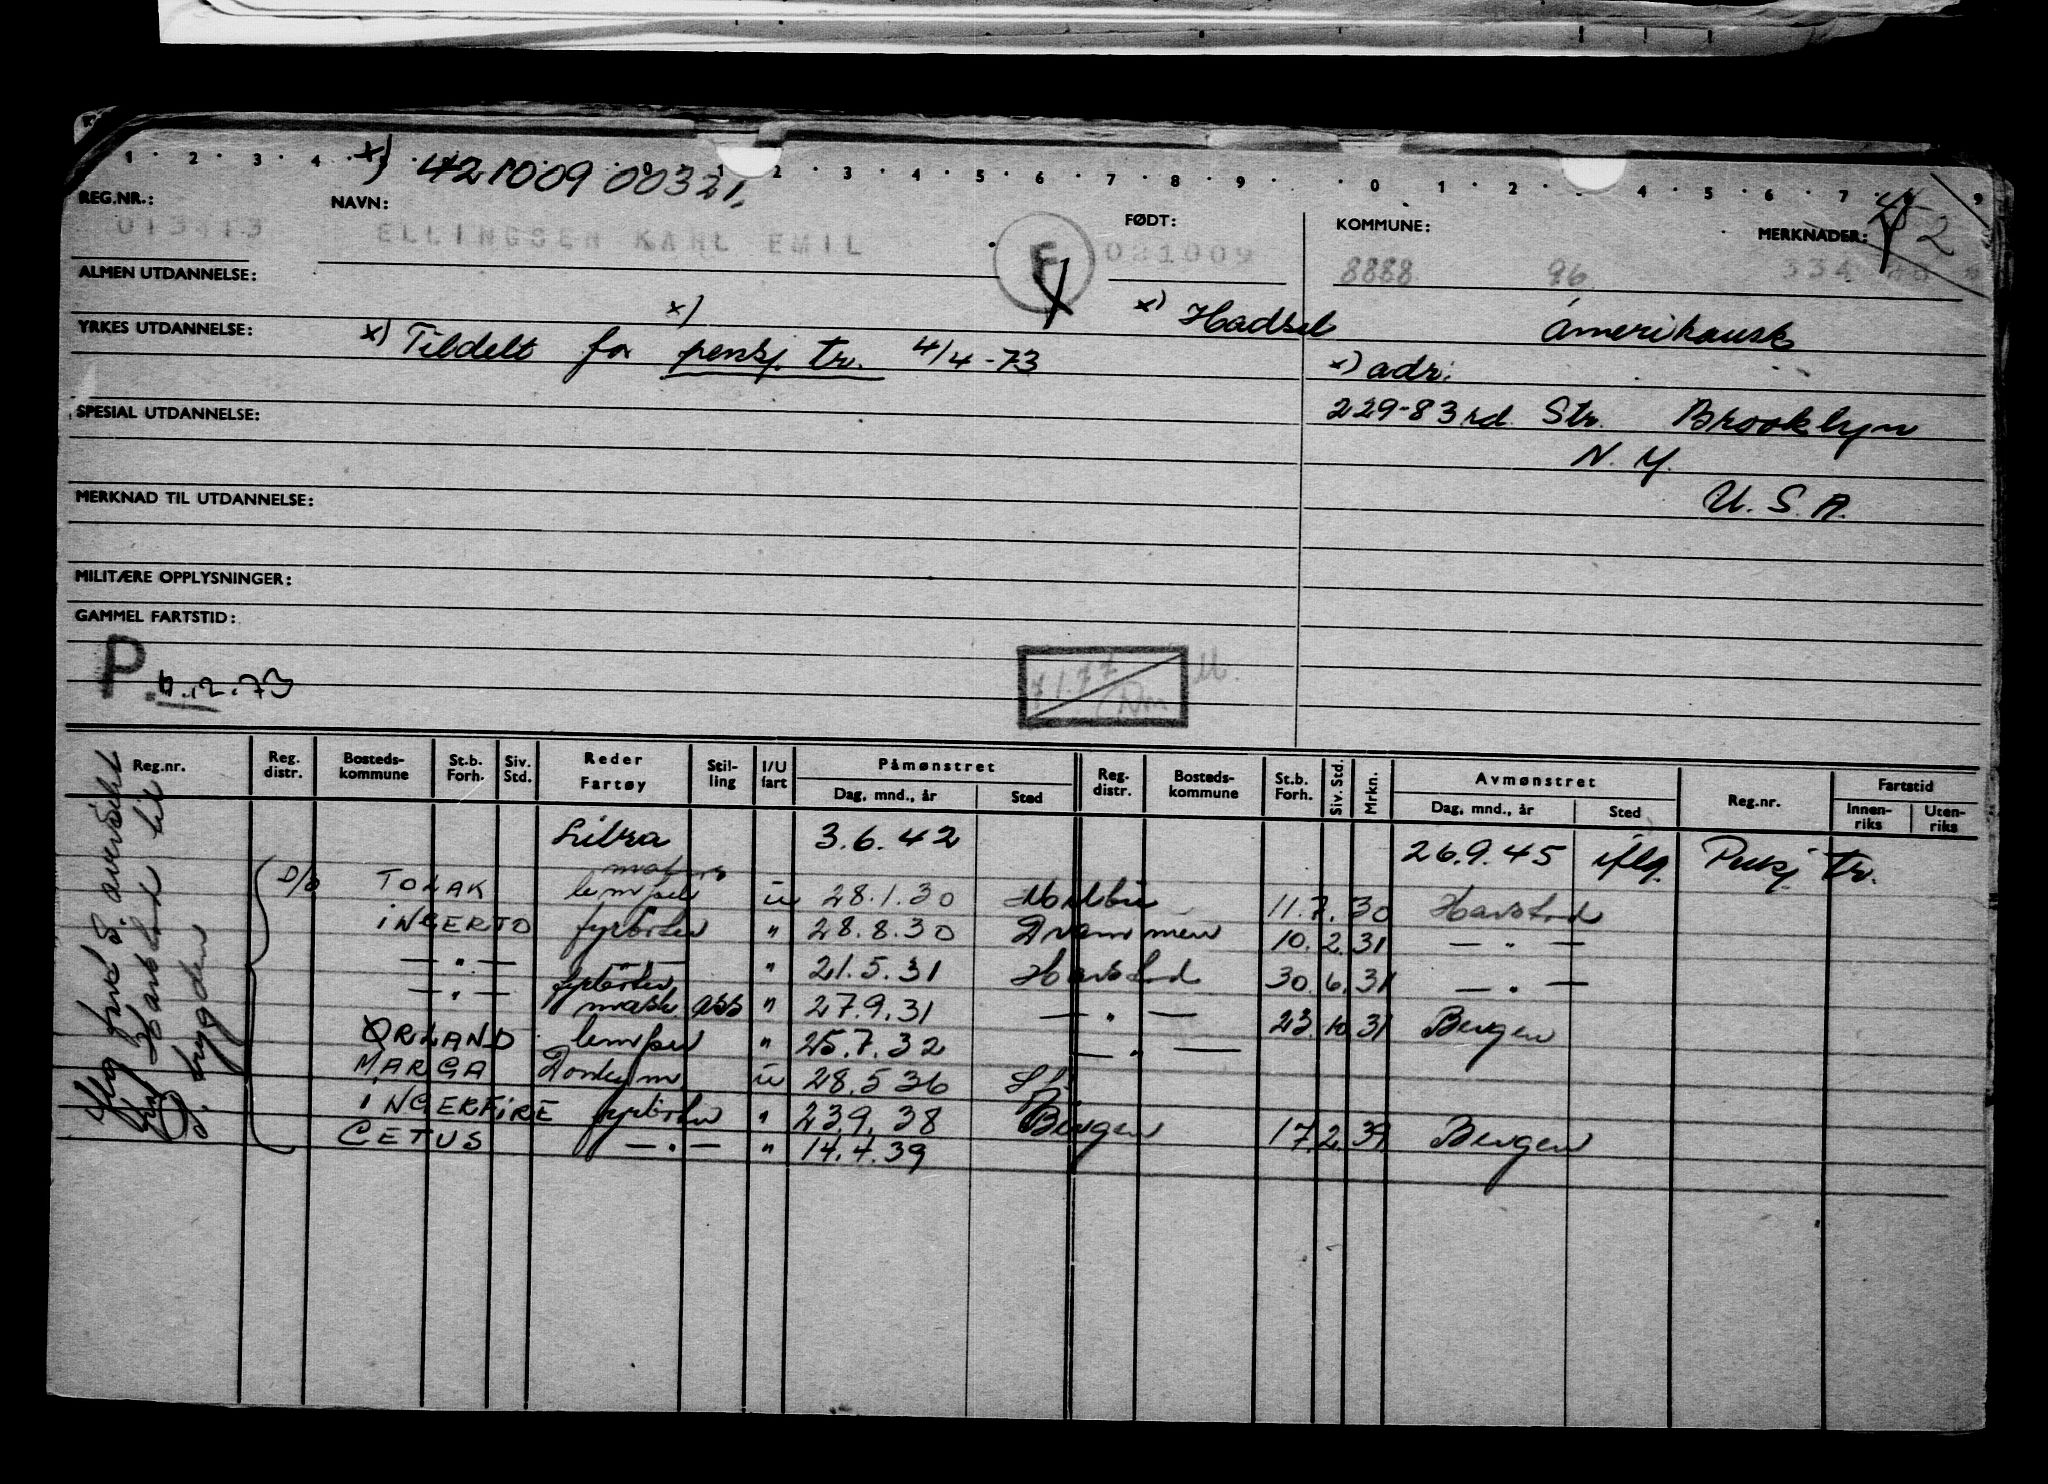 1 · 2 · 3 · 4 · 5 · 0 · 1 · 2 · 3 · 4 · 5 · 6 · 7 · 8 · 9 · 0 · 1 · 2 · 4 · 5 · 6 · 7 · 9
x) 421009 00321.
REG.NR.: NAVN: FØDT: KOMMUNE: MERKNADER: 2
ELLINGSEN KARL EMIL F 021009 8888 96 334
ALMEN UTDANNELSE:
x) x) Hadsel Amerikansk
YRKES UTDANNELSE: x) Tildelt for pensj. tr. 4/4-73
x) adr:
SPESIAL UTDANNELSE: 229-83rd. Str. Brooklyn
N.Y.
MERKNAD TIL UTDANNELSE: U.S.A.
MILITÆRE OPPLYSNINGER:
GAMMEL FARTSTID:
P. .2.73
Reg.nr. Reg. distr. Bosteds-kommune St.b. Forh. Siv. Std. Reder Fartøy Stil-ling I/U fart Påmønstret Dag, mnd., år Sted Reg. distr. Bosteds-kommune St.b. Forh. Siv. Std. Mrkn. Avmønstret Dag, mnd., år Sted Reg.nr. Fartstid Innen-riks Uten-riks
Libra 3.6.42 26.9.45 iflg. Pensj. tr.
D/S TOLAK lemper u 28.1.30 11.7.30 Harstad
INGERTO fyrböter " 28.8.30 Drammen 10.2.31 — " —
— " — — " 21.5.31 Harstad 30.6.31 — " —
— " — fyrböter mask ass " 27.9.31 — " — 23.10.31 Bergen
ØRLAND lemper " 25.7.32 — " —
MARGA Donkeym u 28.5 36
INGERFIRE fyrböter " 23.9.38 Bergen 17.2.39 Bergen
CETUS — " — " 14.4.39